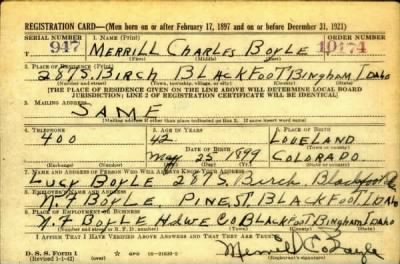 REGISTRATION CARD—(Men born on or after February 17, 1897 and on or before December 31, 1921)
SERIAL NUMBER 1. NAME (Print) ORDER NUMBER
947 MERRILL CHARLES BOYLE 10174
(First) (Middle) (Last)
2. PLACE OF RESIDENCE (Print)
287 S. BIRCH BLACKFOOT BINGHAM IDAHO
(Number and street) (Town, township, village, or city) (County) (State)
[THE PLACE OF RESIDENCE GIVEN ON THE LINE ABOVE WILL DETERMINE LOCAL BOARD
JURISDICTION; LINE 2 OF REGISTRATION CERTIFICATE WILL BE IDENTICAL]
3. MAILING ADDRESS
SAME
(Mailing address if other than place indicated on line 2. If same insert word same)
4. TELEPHONE 5. AGE IN YEARS 6. PLACE OF BIRTH
400 42 LOVELAND
DATE OF BIRTH
May 25 1899 COLORADO
(Exchange) (Number) (Mo.) (Day) (Yr.) (State or country)
7. NAME AND ADDRESS OF PERSON WHO WILL ALWAYS KNOW YOUR ADDRESS
Lucy BOYLE 287 S. Birch. Blackfoot
8. EMPLOYER'S NAME AND ADDRESS
N. F BOYLE PINE ST. BLACKFOOT IDAHO
9. PLACE OF EMPLOYMENT OR BUSINESS
N. F BOYLE HDWE CO BLACKFOOT BINGHAM IDAHO
(Number and street or R. F. D. number) (Town) (County) (State)
I AFFIRM THAT I HAVE VERIFIED ABOVE ANSWERS AND THAT THEY ARE TRUE.
D. S. S. Form 1
(Revised 1-1-42) (over) GPO 16—21630-2
Merrill C Boyle